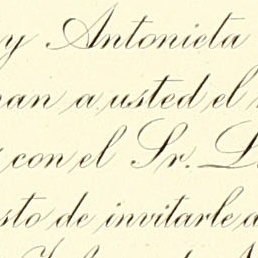 y Antonieta
nan a usted el
con el Sr. L
sto de invitarle a